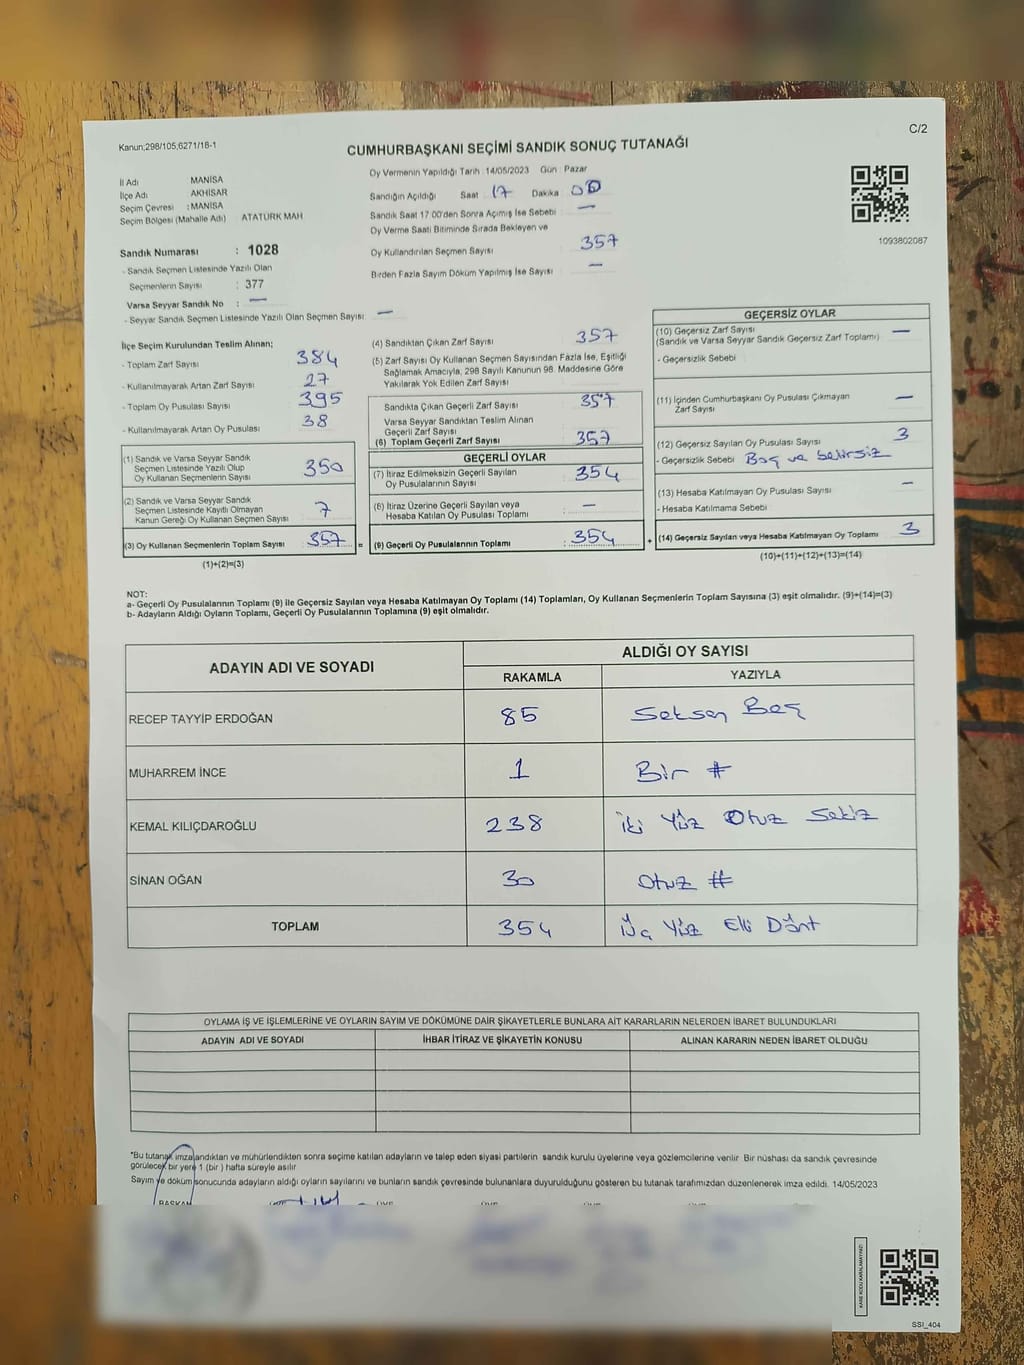 C/2
Kanun;298/105,6271/18-1
CUMHURBAŞKANI SEÇİMİ SANDIK SONUÇ TUTANAĞI
İl Adı MANİSA
İlçe Adı AKHİSAR
Seçim Çevresi : MANİSA
Seçim Bölgesi (Mahalle Adı) ATATÜRK MAH
Sandık Numarası : 1028
- Sandık Seçmen Listesinde Yazılı Olan
Seçmenlerin Sayısı : 377
Varsa Seyyar Sandık No : —
- Seyyar Sandık Seçmen Listesinde Yazılı Olan Seçmen Sayısı: —
Oy Vermenin Yapıldığı Tarih :14/05/2023 Gün : Pazar
Sandığın Açıldığı Saat 17 Dakika 00
Sandık Saat 17 00'den Sonra Açılmış İse Sebebi : —
Oy Verme Saati Bitiminde Sırada Bekleyen ve
Oy Kullandırılan Seçmen Sayısı 357
Birden Fazla Sayım Döküm Yapılmış İse Sayısı : —
1093802087
İlçe Seçim Kurulundan Teslim Alınan;
- Toplam Zarf Sayısı : 384
- Kullanılmayarak Artan Zarf Sayısı : 27
- Toplam Oy Pusulası Sayısı : 395
- Kullanılmayarak Artan Oy Pusulası : 38
(1) Sandık ve Varsa Seyyar Sandık
Seçmen Listesinde Yazılı Olup
Oy Kullanan Seçmenlerin Sayısı : 350
(2) Sandık ve Varsa Seyyar Sandık
Seçmen Listesinde Kayıtlı Olmayan
Kanun Gereği Oy Kullanan Seçmen Sayısı : 7
(3) Oy Kullanan Seçmenlerin Toplam Sayısı : 357 =
(1)+(2)=(3)
(4) Sandıktan Çıkan Zarf Sayısı : 357
(5) Zarf Sayısı Oy Kullanan Seçmen Sayısından Fazla İse, Eşitliği
Sağlamak Amacıyla, 298 Sayılı Kanunun 98. Maddesine Göre
Yakılarak Yok Edilen Zarf Sayısı :
Sandıkta Çıkan Geçerli Zarf Sayısı : 357
Varsa Seyyar Sandıktan Teslim Alınan
Geçerli Zarf Sayısı :
(6) Toplam Geçerli Zarf Sayısı : 357
GEÇERLİ OYLAR
(7) İtiraz Edilmeksizin Geçerli Sayılan
Oy Pusulalarının Sayısı : 354
(8) İtiraz Üzerine Geçerli Sayılan veya
Hesaba Katılan Oy Pusulası Toplamı : —
(9) Geçerli Oy Pusulalarının Toplamı : 354 +
GEÇERSİZ OYLAR
(10) Geçersiz Zarf Sayısı : —
(Sandık ve Varsa Seyyar Sandık Geçersiz Zarf Toplamı)
- Geçersizlik Sebebi :
(11) İçinden Cumhurbaşkanı Oy Pusulası Çıkmayan
Zarf Sayısı : —
(12) Geçersiz Sayılan Oy Pusulası Sayısı : 3
- Geçersizlik Sebebi : Boş ve belirsiz
(13) Hesaba Katılmayan Oy Pusulası Sayısı : —
- Hesaba Katılmama Sebebi :
(14) Geçersiz Sayılan veya Hesaba Katılmayan Oy Toplamı : 3
(10)+(11)+(12)+(13)=(14)
NOT:
a- Geçerli Oy Pusulalarının Toplamı (9) ile Geçersiz Sayılan veya Hesaba Katılmayan Oy Toplamı (14) Toplamları, Oy Kullanan Seçmenlerin Toplam Sayısına (3) eşit olmalıdır. (9)+(14)=(3)
b- Adayların Aldığı Oyların Toplamı, Geçerli Oy Pusulalarının Toplamına (9) eşit olmalıdır.
ADAYIN ADI VE SOYADI
ALDIĞI OY SAYISI
RAKAMLA YAZIYLA
RECEP TAYYİP ERDOĞAN 85 Seksen Beş
MUHARREM İNCE 1 Bir #
KEMAL KILIÇDAROĞLU 238 İki Yüz Otuz Sekiz
SİNAN OĞAN 30 Otuz #
TOPLAM 354 Üç Yüz Elli Dört
OYLAMA İŞ VE İŞLEMLERİNE VE OYLARIN SAYIM VE DÖKÜMÜNE DAİR ŞİKAYETLERLE BUNLARA AİT KARARLARIN NELERDEN İBARET BULUNDUKLARI
ADAYIN ADI VE SOYADI İHBAR İTİRAZ VE ŞİKAYETİN KONUSU ALINAN KARARIN NEDEN İBARET OLDUĞU
*Bu tutanak imzalandıktan ve mühürlendikten sonra seçime katılan adayların ve talep eden siyasi partilerin sandık kurulu üyelerine veya gözlemcilerine verilir. Bir nüshası da sandık çevresinde
görülecek bir yere 1 (bir) hafta süreyle asılır
Sayım ve döküm sonucunda adayların aldığı oyların sayılarını ve bunların sandık çevresinde bulunanlara duyurulduğunu gösteren bu tutanak tarafımızdan düzenlenerek imza edildi. 14/05/2023
BAŞKAN
SSI_404